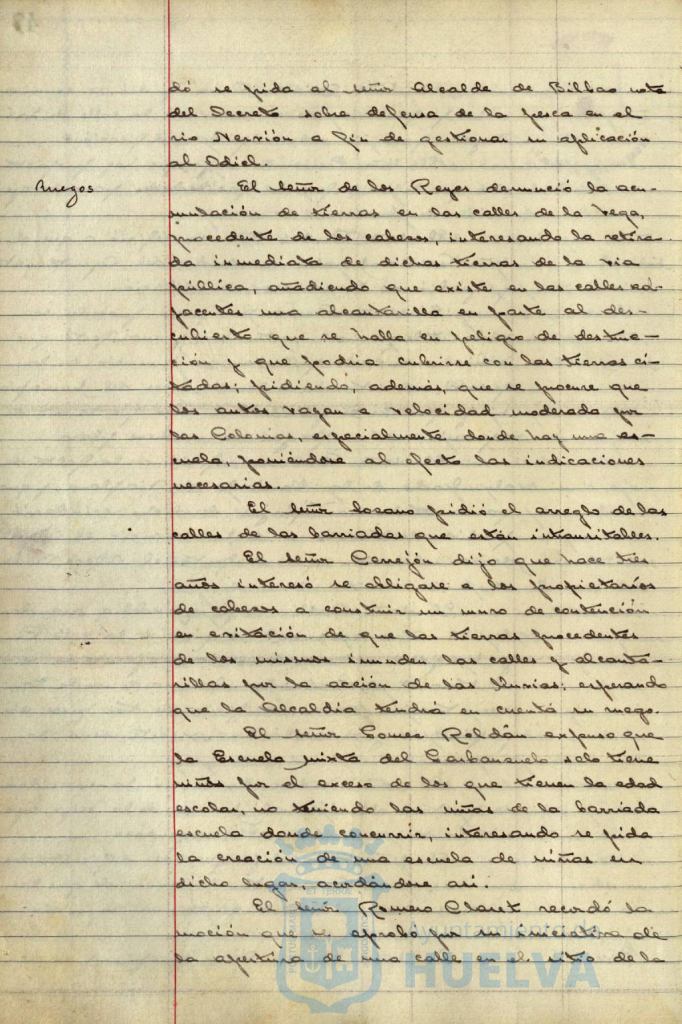 dó se pida al señor Alcalde de Bilbao nota
del Decreto sobre defensa de la pesca en el
rio Nervión a fin de gestionar su aplicación
al Odiel.
Ruegos
El señor de los Reyes denunció la acu-
mulación de tierras en las calles de la Vega,
procedente de los cabezos, interesando la retira-
da inmediata de dichas tierras de la via
pública, añadiendo que existe en las calles ad-
yacentes una alcantarilla en parte al des-
cubierto que se halla en peligro de destruc-
ción y que podria cubrirse con las tierras ci-
tadas; pidiendo, además, que se procure que
los autos vayan a velocidad moderada por
las Colonias, especialmente donde hay una es-
cuela, poniéndose al efecto las indicaciones
necesarias.
El señor Lozano pidió el arreglo de las
calles de las barriadas que están intransitables.
El señor Cerrejón dijo que hace tres
años interesó se obligase a los propietarios
de cabezos a construir un muro de contención
en evitación de que las tierras procedentes
de los mismos inunden las calles y alcanta-
rillas por la acción de las lluvias; esperando
que la Alcaldia tendrá en cuenta su ruego.
El señor Gomez Roldán expuso que
la Escuela mixta del Garbanzuelo solo tiene
niños por el exceso de los que tienen la edad
escolar, no teniendo las niñas de la barriada
escuela donde concurrir, interesando se pida
la creación de una escuela de niñas en
dicho lugar, acordándose así.
El señor Romero Claret recordó la
moción que se aprobó por su iniciativa de
la apertura de una calle en el sitio de la
Ayuntamiento de
HUELVA